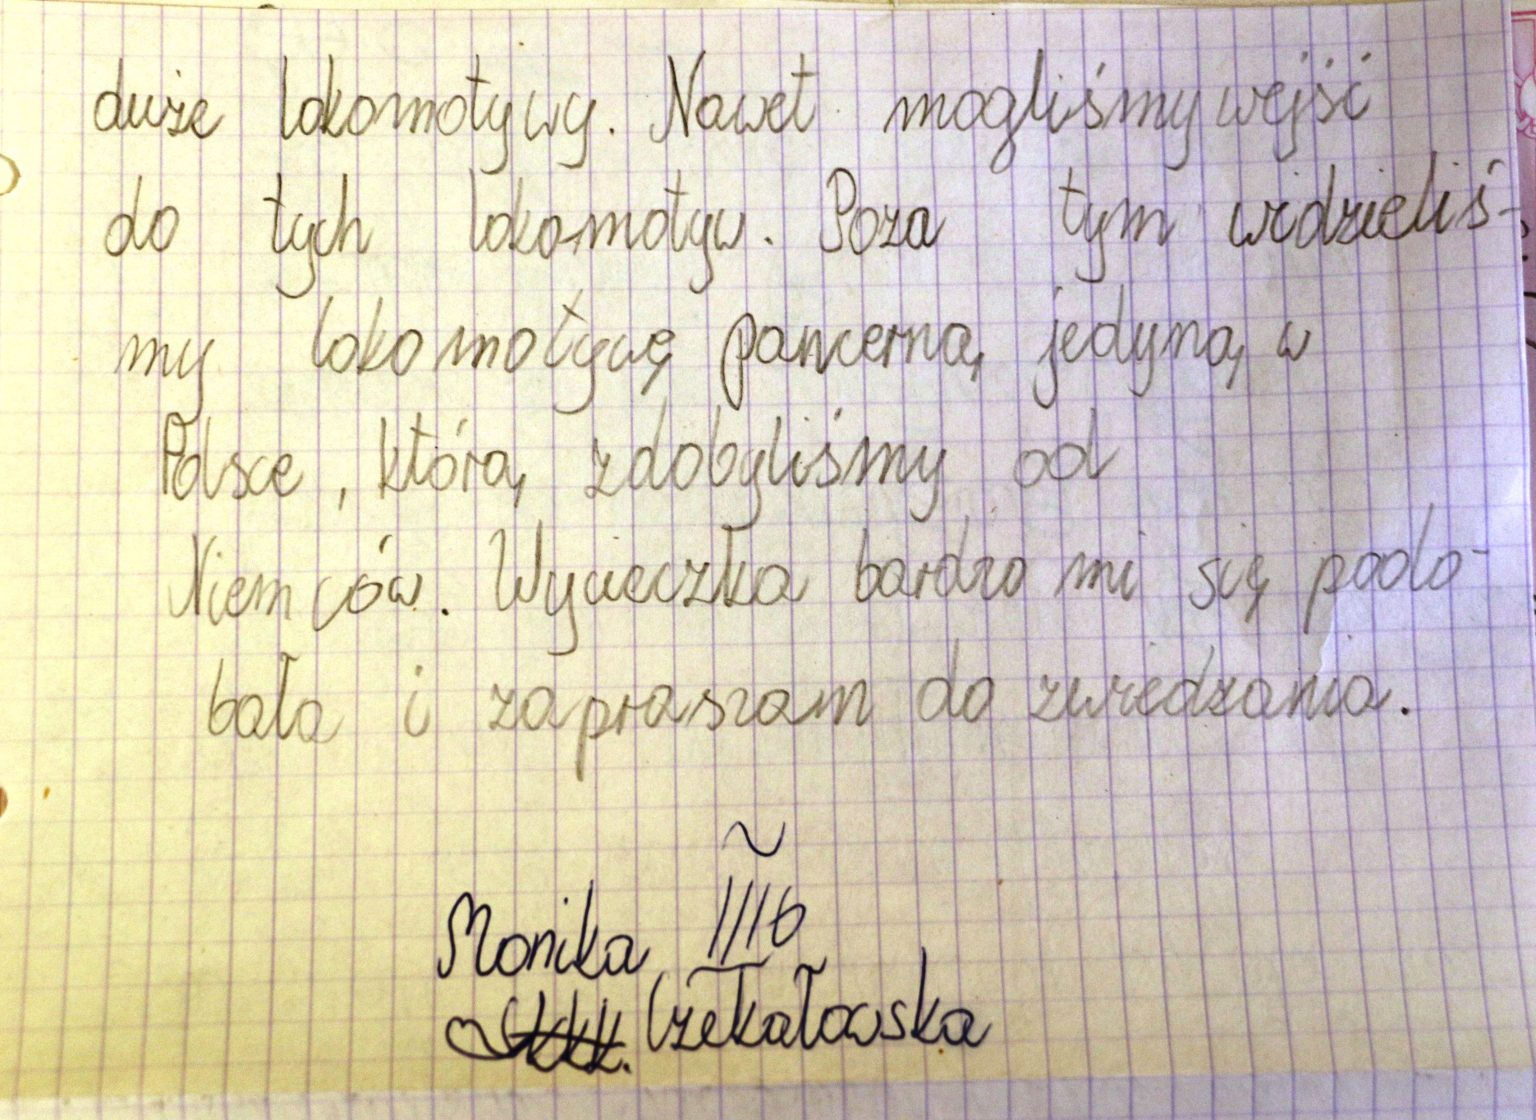 duże lokomotywy. Nawet mogliśmy wejść
do tych lokomotyw. Poza tym widzieliś-
my lokomotywę pancerną, jedyną w
Polsce, którą zdobyliśmy od
Niemców. Wycieczka bardzo mi się podo-
bała i zapraszam do zwiedzania.
Monika IIIb
Czekałowska